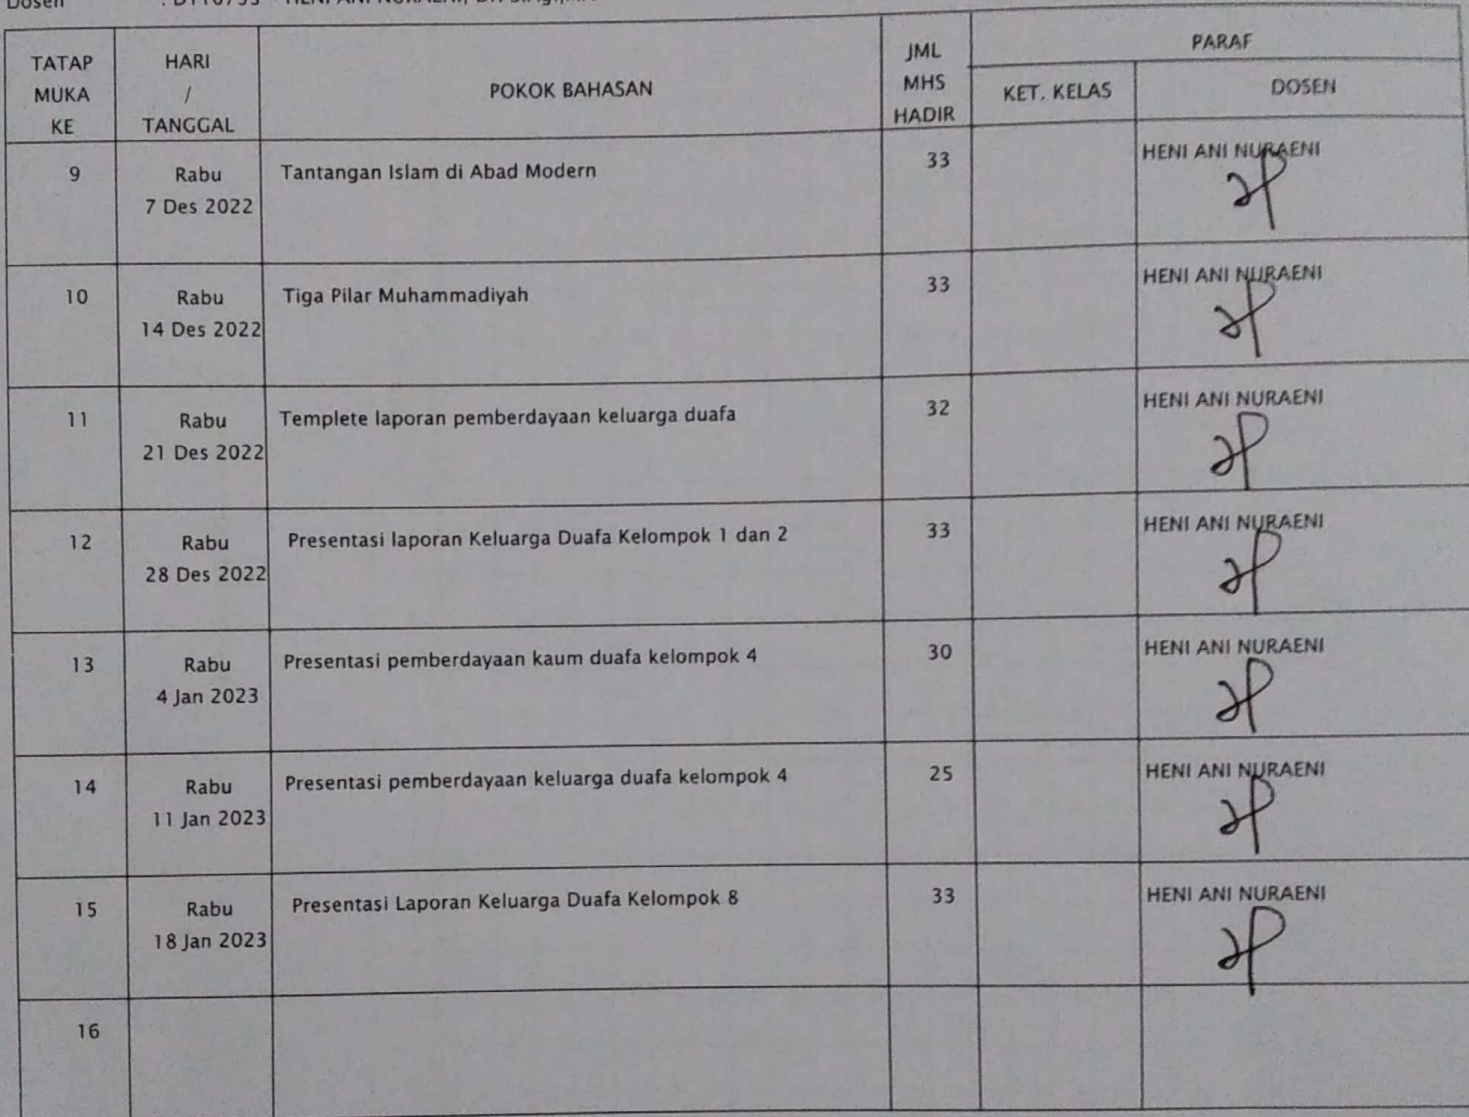 Dosen
TATAP MUKA KE
HARI / TANGGAL
POKOK BAHASAN
JML MHS HADIR
PARAF
KET. KELAS
DOSEN
9 Rabu Tantangan Islam di Abad Modern 33 HENI ANI NURAENI
7 Des 2022
10 Rabu Tiga Pilar Muhammadiyah 33 HENI ANI NURAENI
14 Des 2022
11 Rabu Templete laporan pemberdayaan keluarga duafa 32 HENI ANI NURAENI
21 Des 2022
12 Rabu Presentasi laporan Keluarga Duafa Kelompok 1 dan 2 33 HENI ANI NURAENI
28 Des 2022
13 Rabu Presentasi pemberdayaan kaum duafa kelompok 4 30 HENI ANI NURAENI
4 Jan 2023
14 Rabu Presentasi pemberdayaan keluarga duafa kelompok 4 25 HENI ANI NURAENI
11 Jan 2023
15 Rabu Presentasi Laporan Keluarga Duafa Kelompok 8 33 HENI ANI NURAENI
18 Jan 2023
16